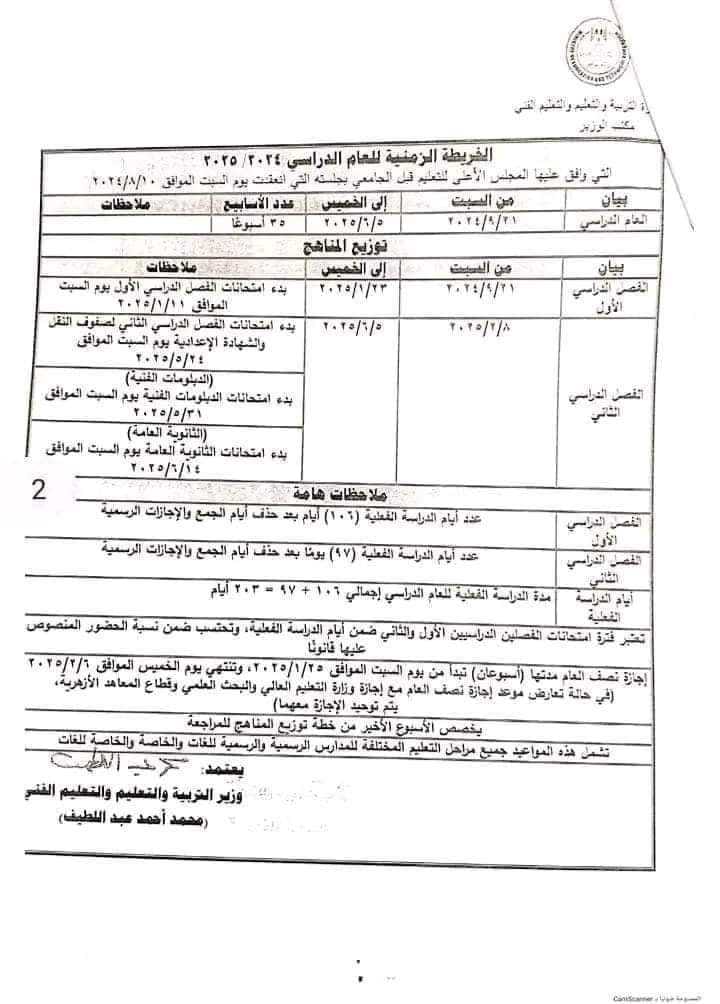 والتعليم والتعليم الفني
مكتب الوزير
الخريطة الزمنية للعام الدراسي ٢٠٢٤/ ٢٠٢٥
التي وافق عليها المجلس الأعلى للتعليم قبل الجامعي بجلسته التي انعقدت يوم السبت الموافق ٢٠٢٤/٨/١٠
بيان من السبت إلى الخميس عدد الأسابيع ملاحظات
العام الدراسي ٢٠٢٤/٩/٢١ ٢٠٢٥/٦/٥ ٣٥ أسبوعًا
توزيع المناهج
بيان من السبت إلى الخميس ملاحظات
الفصل الدراسي ٢٠٢٤/٩/٢١ ٢٠٢٥/١/٢٣ بدء امتحانات الفصل الدراسي الأول يوم السبت
الأول الموافق ٢٠٢٥/١/١١
٢٠٢٥/٢/٨ ٢٠٢٥/٦/٥ بدء امتحانات الفصل الدراسي الثاني لصفوف النقل
والشهادة الإعدادية يوم السبت الموافق
٢٠٢٥/٥/٢٤
(الدبلومات الفنية)
الفصل الدراسي بدء امتحانات الدبلومات الفنية يوم السبت الموافق
الثاني ٢٠٢٥/٥/٣١
(الثانوية العامة)
بدء امتحانات الثانوية العامة يوم السبت الموافق
٢٠٢٥/٦/١٤
2
ملاحظات هامة
الفصل الدراسي عدد أيام الدراسة الفعلية (١٠٦) أيام بعد حذف أيام الجمع والإجازات الرسمية
الأول
الفصل الدراسي عدد أيام الدراسة الفعلية (٩٧) يومًا بعد حذف أيام الجمع والإجازات الرسمية
الثاني
أيام الدراسة مدة الدراسة الفعلية للعام الدراسي إجمالي ١٠٦ + ٩٧ = ٢٠٣ أيام
الفعلية
تعتبر فترة امتحانات الفصلين الدراسيين الأول والثاني ضمن أيام الدراسة الفعلية، وتحتسب ضمن نسبة الحضور المنصوص
عليها قانونًا
إجازة نصف العام مدتها (أسبوعان) تبدأ من يوم السبت الموافق ٢٠٢٥/١/٢٥، وتنتهي يوم الخميس الموافق ٢٠٢٥/٢/٦
(في حالة تعارض موعد إجازة نصف العام مع إجازة وزارة التعليم العالي والبحث العلمي وقطاع المعاهد الأزهرية،
يتم توحيد الإجازة معهما)
يخصص الأسبوع الأخير من خطة توزيع المناهج للمراجعة
تشمل هذه المواعيد جميع مراحل التعليم المختلفة للمدارس الرسمية والرسمية للغات والخاصة والخاصة للغات
يعتمد:
وزير التربية والتعليم والتعليم الفني
(محمد أحمد عبد اللطيف)
الممسوحة ضوئيا بـ CamScanner